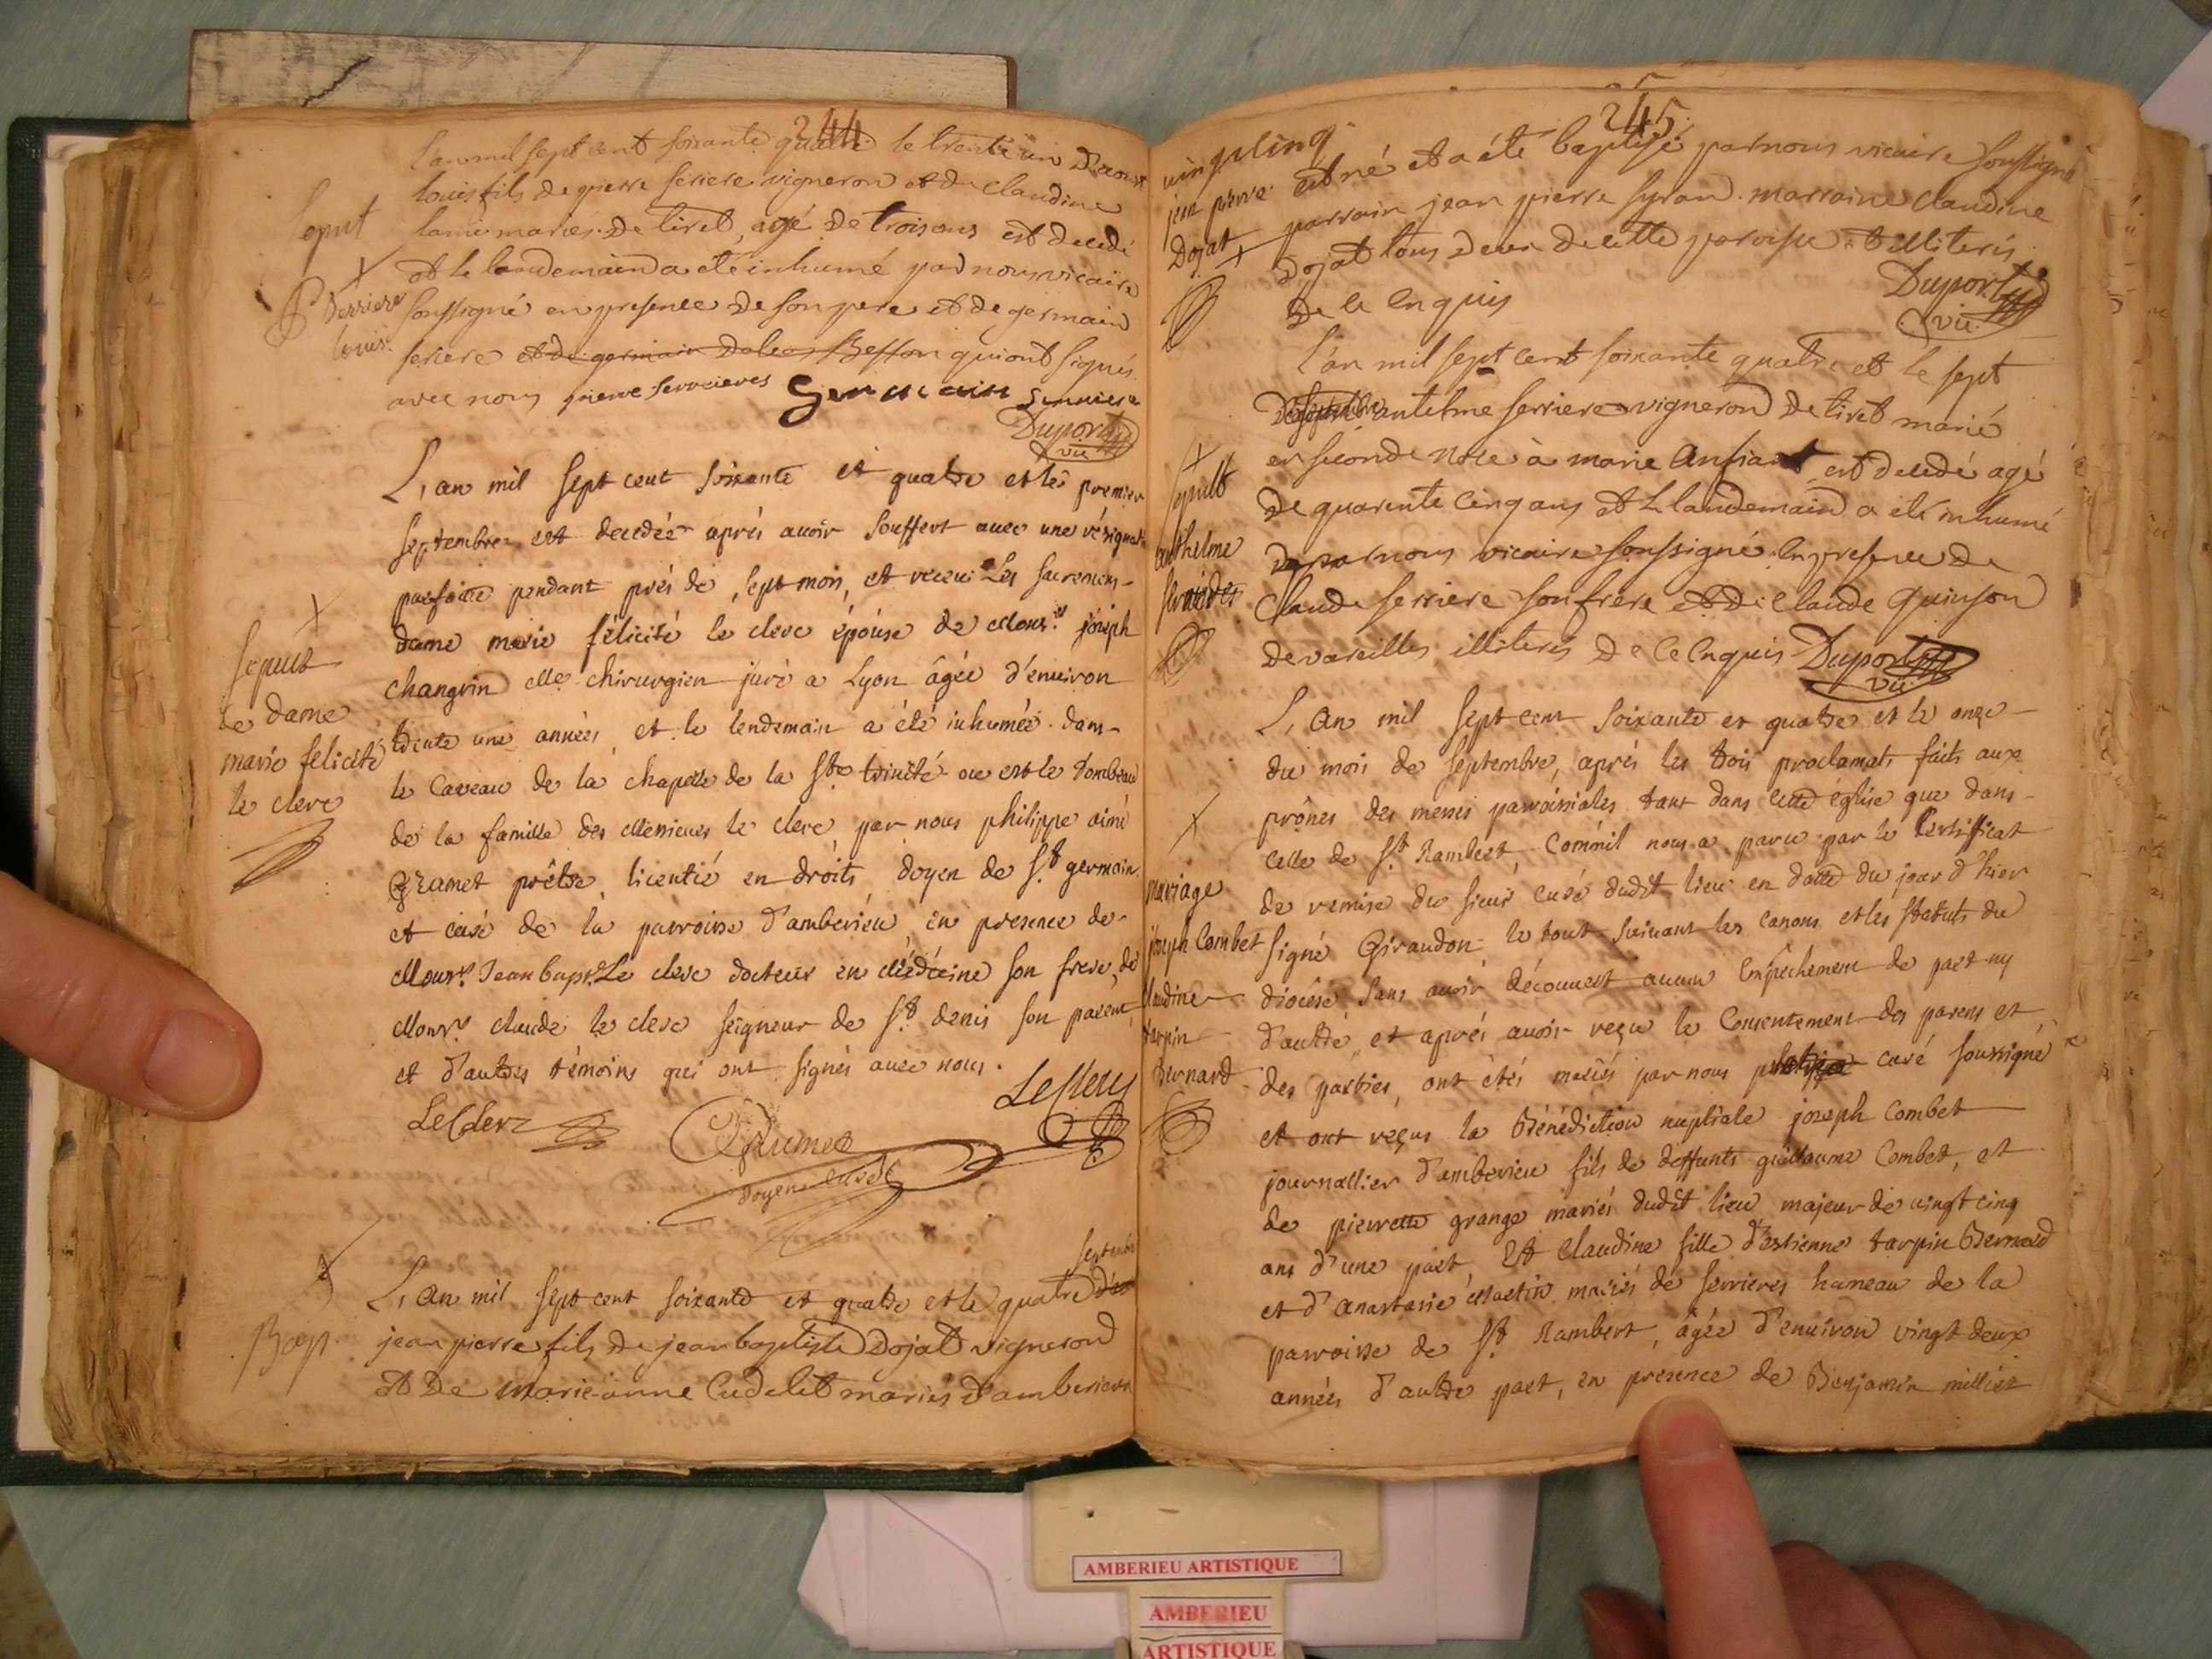 244
L'an mil sept cent soixante quatre le trente un d'aout
louis fils de pierre seriere vigneron et de claudine
lamé mariés de tiret, agé de trois ans est decedé
et le landemain a été inhumé par nous vicaire
soussigné en presence de son pere et de germain
seriere et de germain qui ont signés
avec nous pierre serrieres Germain
Duport
vic
sepult
Serriere
louis
L'an mil sept cent soixante et quatre et le premier
septembre est decedée aprés avoir souffert avec une résignat
parfaite pendant prés de sept mois, et receu les sacremens
dame marie félicité le clerc épouse de Monsr joseph
changrin Me chirurgien juré a Lyon âgée d'environ
trente une années et le lendemain a été inhumée dans
le Caveau de la chapelle de la Ste trinité ou est le tombeau
de la famille des Messieurs le clerc par nous philippe aimé
Gramet prêtre, licentié en droits, doyen de St germain
et curé de la parroisse d'amberieu en presence de
Monsr Jean bapt. Le clerc docteur en Médecine son frere, de
Monsr claude le clerc seigneur de St denis son parent
et d'autres témoins qui ont signés avec nous.
LeClerc
Gramet
LeClerc
doyen curé
sepult
de dame
marie felicité
le clerc
septembre
L'an mil sept cent soixante et quatre et le quatre
jean pierre fils de jean baptiste Dojat vigneron
et De marieanne Cudelet mariés d'amberieu
Bap.
245
jean pierre
Dojat
est né et a été baptisé par nous vicaire soussigné
parrain jean pierre syran. marraine claudine
dojat tous deux de cette paroisse illiterés
De ce Enquis
Duport
vic
L'an mil sept cent soixante quatre et le sept
antelme serriere vigneron de tiret marié
en seconde noce à marie est decedé agé
de quarente cinq ans et le landemain a été inhumé
par nous vicaire soussigné en presence de
Claude serriere son frere et de Claude quinson
de vareilles illiterés De ce Enquis Duport
vic
sepult
anthelme
L'an mil sept cent soixante et quatre et le onze
du mois de septembre, aprés les trois proclamats faits aux
prônes des messes parroissiales tant dans cette église que dans
celle de St Rambert, comm'il nous a paru par le Certificat
de remise du sieur curé dudit lieu en datte du jour d'hier
signé Giraudon, le tout suivant les canons et les statuts du
diocése sans avoir découvert aucun Empêchement de part ny
d'autre et aprés avoir reçu le Consentement des parens et
des parties, ont étés mariés par nous curé soussigné
et ont reçus la Bénédiction nuptiale joseph Combet
journallier d'amberieu fils de deffunts guillaume Combet, et
de pierrette grange mariés dudit lieu majeur de vingt cinq
ans d'une part, Et Claudine fille d'estienne tarpin Bernard
et d'anastasie Martin mariés de serrieres hameau de la
parroisse de St Rambert, âgée d'environ vingt deux
années d'autre part, en presence de Benjamin millier
mariage
joseph Combet
Claudine
tarpin
Bernard
AMBERIEU ARTISTIQUE
AMBERIEU
ARTISTIQUE